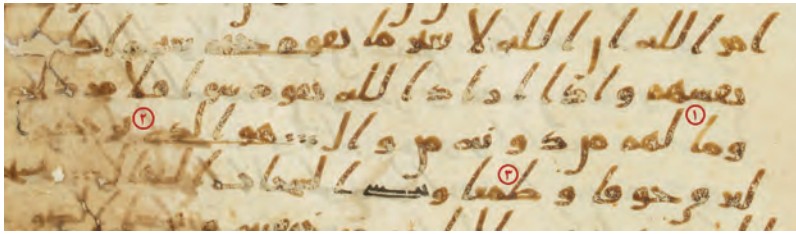 امر الله ان الله لا يغير ما بقوم حتى يغيروا ما با
نفسهم واذا اراد الله بقوم سوا فلا مرد له
١ ٢
وما لهم من دونه من وال هو الذي يريكم ا
٣
لبرق خوفا وطمعا وينشى السحاب الثقال